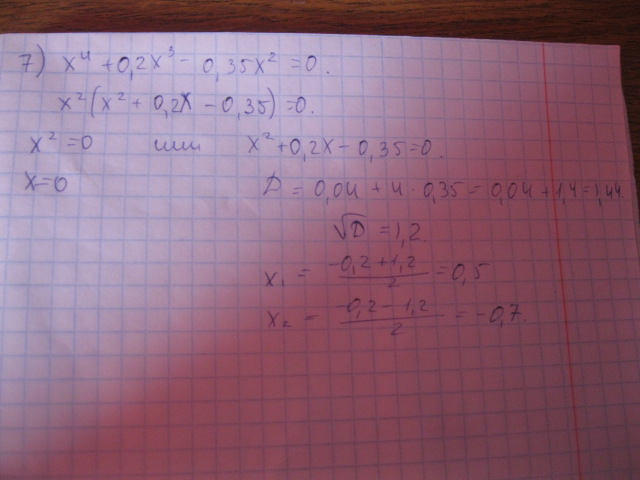 7) x⁴ + 0,2x³ - 0,35x² = 0.
x²(x² + 0,2x - 0,35) = 0.
x² = 0 или x² + 0,2x - 0,35 = 0.
x = 0 D = 0,04 + 4 · 0,35 = 0,04 + 1,4 = 1,44.
√D = 1,2.
x₁ = (-0,2 + 1,2)/2 = 0,5
x₂ = (-0,2 - 1,2)/2 = -0,7.